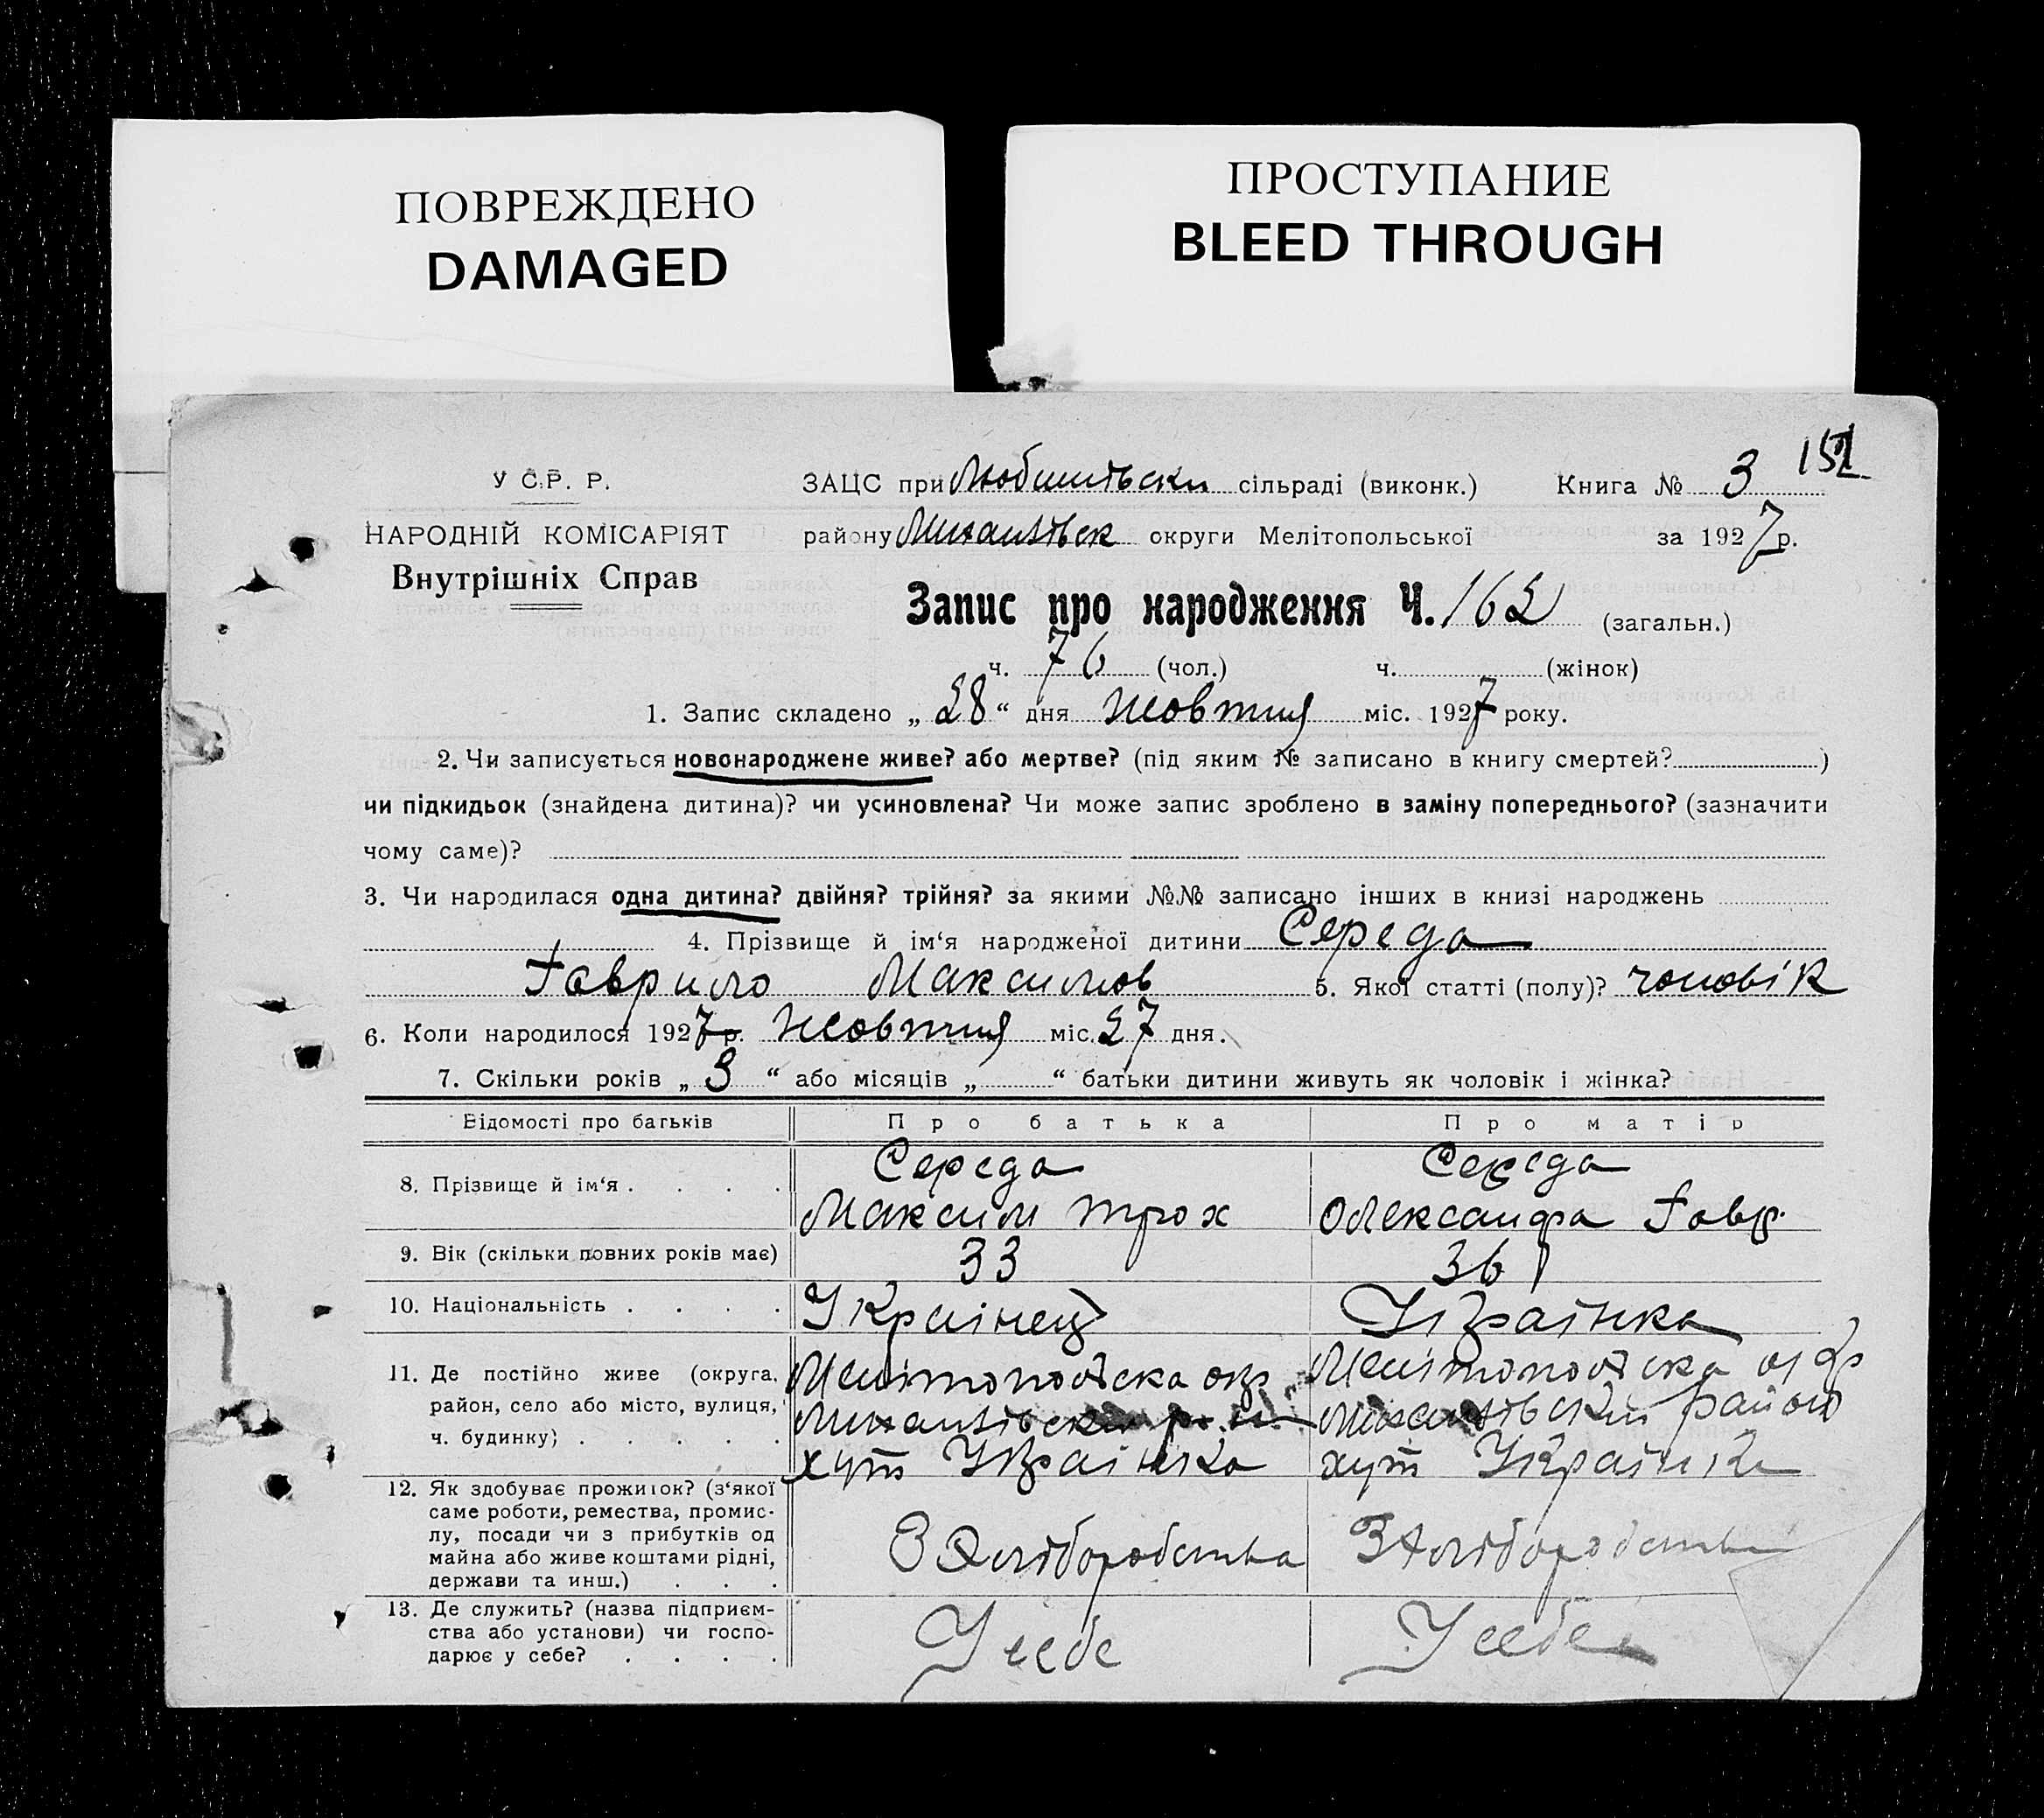 ПОВРЕЖДЕНО
DAMAGED
ПРОСТУПАНИЕ
BLEED THROUGH
У С.Р. Р.
НАРОДНІЙ КОМІСАРІЯТ
Внутрішніх Справ
ЗАЦС при сільраді (виконк.) Книга № 3
району округи Мелітопольської за 1927 р.
Запис про народження Ч. 162 (загальн.)
ч. 76 (чол.) ч. (жінок)
1. Запис складено „ 28 “ дня жовтня міс. 1927 року.
2. Чи записується новонароджене живе? або мертве? (під яким № записано в книгу смертей? )
чи підкидьок (знайдена дитина)? чи усиновлена? Чи може запис зроблено в заміну попереднього? (зазначити
чому саме)?
3. Чи народилася одна дитина? двійня? трійня? за якими №№ записано інших в книзі народжень
4. Прізвище й ім‘я народженої дитини Середа
Гаврило Максимов 5. Якої статті (полу)? чоловік
6. Коли народилося 1927 р. жовтня міс. 27 дня.
7. Скільки років „ 3 “ або місяців „ “ батьки дитини живуть як чоловік і жінка?
Відомості про батьків Про батька Про матір
8. Прізвище й ім‘я . . . . Середа Середа
Максим Трох Олександра Гавр.
9. Вік (скільки повних років має) 33 36
10. Національність . . . . Українец Українка
11. Де постійно живе (округа, Мелітопольска окр Мелітопольска окр
район, село або місто, вулиця, Михайлівский район
ч. будинку) . . . . . хут Українка хут Українка
12. Як здобуває прожиток? (з‘якої
саме роботи, ремества, промис-
лу, посади чи з прибутків од З Хліборобства З Хліборобства
майна або живе коштами рідні,
держави та инш.) . . .
13. Де служить? (назва підприєм-
ства або установи) чи госпо- У себе У себе
дарює у себе? . . . .